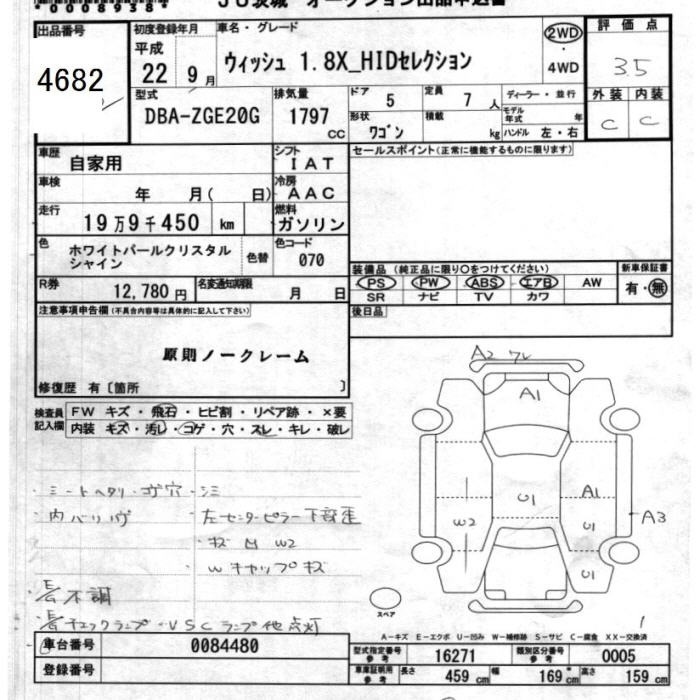 00008938
JU茨城 オークション出品申込書
出品番号
4682
初度登録年月
平成
22 9月
車名・グレード
ウィッシュ 1.8X_HIDセレクション
2WD
・
4WD
評価点
3.5
外装 内装
C C
型式
DBA-ZGE20G
排気量
1797
CC
ドア
5
定員
7 人
形状
ワゴン
積載
kg
ディーラー・並行
モデル年式 年
ハンドル 左・右
車歴
自家用
シフト
IAT
車検
年 月( 日)
冷房
AAC
走行
19万9千450 km
燃料
ガソリン
色
ホワイトパールクリスタル
シャイン
色替
色コード
070
R券
12,780 円
名変通知期限
月 日
セールスポイント(正常に機能するものに限ります)
装備品 (純正品に限り○をつけてください)
PS PW ABS エアB AW
SR ナビ TV カワ
新車保証書
有・無
後日品
注意事項申告欄(不具合内容等は具体的に記入して下さい)
原則ノークレーム
修復歴 有〔箇所 〕
検査員
記入欄
FW キズ・飛石・ヒビ割・リペア跡・×要
内装・キズ・汚レ・コゲ・穴・スレ・キレ・破レ
・シートヘタリ・コゲ穴・シミ
・内ハリハゲ
・左センターピラー下部歪
・キズ凹 W2
・Wキャップキズ
不調
チェックランプ・VSCランプ他点灯
A2 ワレ
A1
U1
A1
W2
U1
A3
U1
スペア
A-キズ E-エクボ U-凹み W-補修跡 S-サビ C-腐食 XX-交換済
車台番号
0084480
登録番号
型式指定番号
参考
16271
類別区分番号
参考
0005
車庫証明用
参考
長さ
459 cm
幅
169 cm
高さ
159 cm